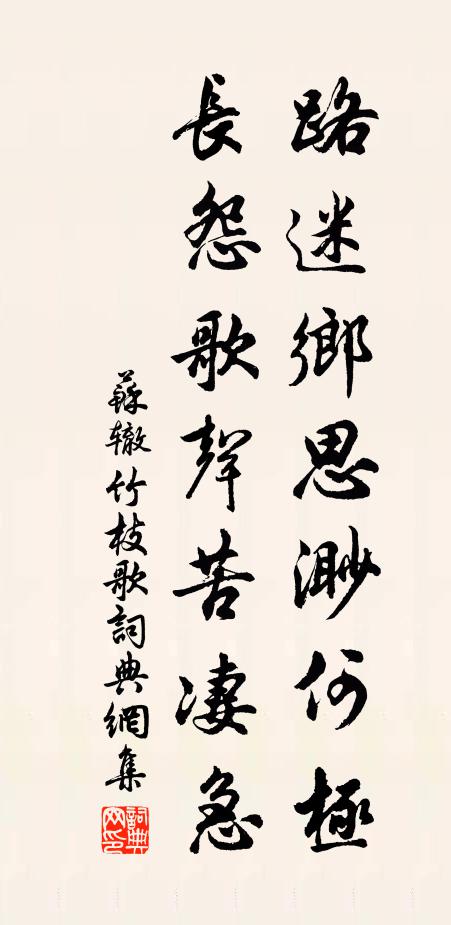 路迷鄉思渺何極
長怨歌聲苦凄急
蘇轍竹枝歌詞典網集
詞典網印